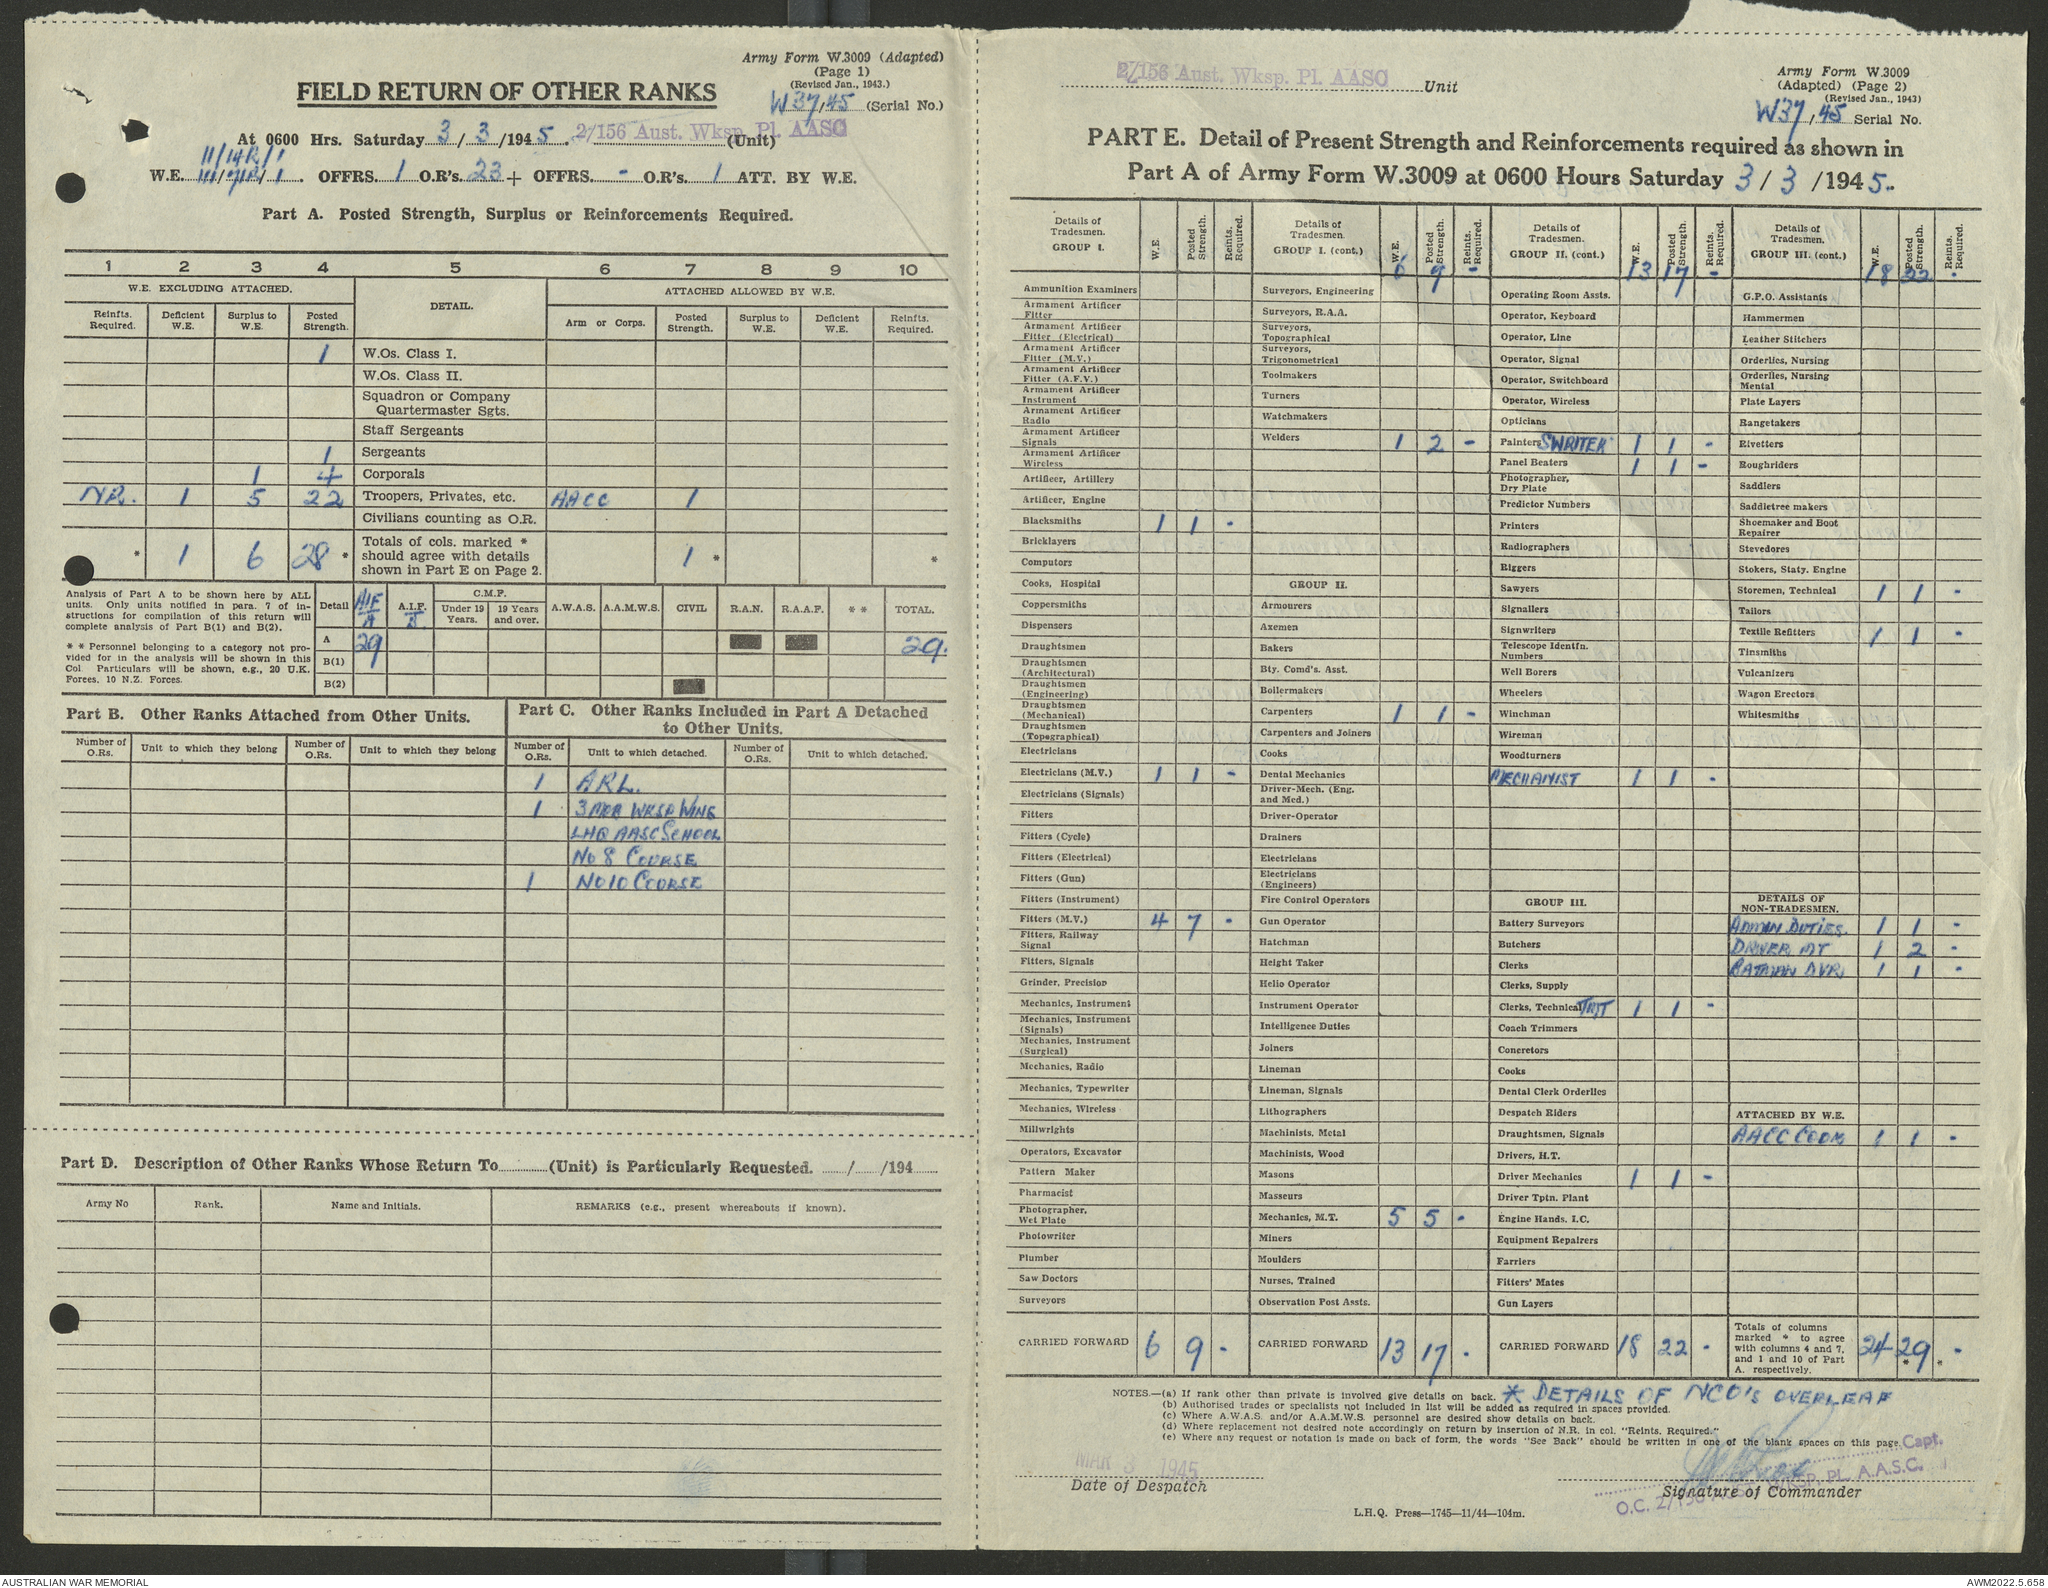 Army Form W.3009 (Adapted)
(Page 1)
(Revised Jan., 1943.)
FIELD RETURN OF OTHER RANKS
W37/45 (Serial No.)
At 0600 Hrs. Saturday 3/3/1945. 2/156 Aust. Wksp. Pl. AASC (Unit)
11/14R/1
W.E. III/71R/1. OFFRS. 1 O.R's. 23 + OFFRS. - O.R's. 1 ATT. BY W.E.
Part A. Posted Strength, Surplus or Reinforcements Required.
1 2 3 4 5 6 7 8 9 10
W.E. EXCLUDING ATTACHED. DETAIL. ATTACHED ALLOWED BY W.E.
Reinfts. Required. Deficient W.E. Surplus to W.E. Posted Strength. Arm or Corps. Posted Strength. Surplus to W.E. Deficient W.E. Reinfts. Required.
1 W.Os. Class I.
W.Os. Class II.
Squadron or Company
Quartermaster Sgts.
Staff Sergeants
1 Sergeants
1 4 Corporals
NR. 1 5 22 Troopers, Privates, etc. AACC 1
Civilians counting as O.R.
* 1 6 28 * Totals of cols. marked * should agree with details shown in Part E on Page 2. 1 * *
Analysis of Part A to be shown here by ALL
units. Only units notified in para. 7 of in-
structions for compilation of this return will
complete analysis of Part B(1) and B(2).
* * Personnel belonging to a category not pro-
vided for in the analysis will be shown in this
Col. Particulars will be shown, e.g., 20 U.K.
Forces, 10 N.Z. Forces.
Detail AIF A A.I.F. B C.M.F. Under 19 Years. 19 Years and over. A.W.A.S. A.A.M.W.S. CIVIL R.A.N. R.A.A.F. * * TOTAL.
A 29 29.
B(1)
B(2)
Part B. Other Ranks Attached from Other Units.
Number of O.Rs. Unit to which they belong Number of O.Rs. Unit to which they belong
Part C. Other Ranks Included in Part A Detached
to Other Units.
Number of O.Rs. Unit to which detached. Number of O.Rs. Unit to which detached.
1 ARL.
1 3 MOB WKSP WING
LHQ AASC SCHOOL
No 8 COURSE
1 No 10 COURSE
Part D. Description of Other Ranks Whose Return To (Unit) is Particularly Requested. / /194
Army No Rank. Name and Initials. REMARKS (e.g., present whereabouts if known).
2/156 Aust. Wksp. Pl. AASC Unit
Army Form W.3009
(Adapted) (Page 2)
(Revised Jan., 1943)
W37/45 Serial No.
PART E. Detail of Present Strength and Reinforcements required as shown in
Part A of Army Form W.3009 at 0600 Hours Saturday 3/3/1945.
Details of Tradesmen. GROUP I. W.E. Posted Strength. Reints. Required.
Ammunition Examiners
Armament Artificer Fitter
Armament Artificer Fitter (Electrical)
Armament Artificer Fitter (M.V.)
Armament Artificer Fitter (A.F.V.)
Armament Artificer Instrument
Armament Artificer Radio
Armament Artificer Signals
Armament Artificer Wireless
Artificer, Artillery
Artificer, Engine
Blacksmiths 1 1 -
Bricklayers
Computors
Cooks, Hospital
Coppersmiths
Dispensers
Draughtsmen
Draughtsmen (Architectural)
Draughtsmen (Engineering)
Draughtsmen (Mechanical)
Draughtsmen (Topographical)
Electricians
Electricians (M.V.) 1 1 -
Electricians (Signals)
Fitters
Fitters (Cycle)
Fitters (Electrical)
Fitters (Gun)
Fitters (Instrument)
Fitters (M.V.) 4 7 -
Fitters, Railway Signal
Fitters, Signals
Grinder, Precision
Mechanics, Instrument
Mechanics, Instrument (Signals)
Mechanics, Instrument (Surgical)
Mechanics, Radio
Mechanics, Typewriter
Mechanics, Wireless
Millwrights
Operators, Excavator
Pattern Maker
Pharmacist
Photographer, Wet Plate
Photowriter
Plumber
Saw Doctors
Surveyors
CARRIED FORWARD 6 9 -
Details of Tradesmen. GROUP I. (cont.) W.E. Posted Strength. Reints. Required.
6 9 -
Surveyors, Engineering
Surveyors, R.A.A.
Surveyors, Topographical
Surveyors, Trigonometrical
Toolmakers
Turners
Watchmakers
Welders 1 2 -
GROUP II.
Armourers
Axemen
Bakers
Bty. Comd's. Asst.
Boilermakers
Carpenters 1 1 -
Carpenters and Joiners
Cooks
Dental Mechanics
Driver-Mech. (Eng. and Med.)
Driver-Operator
Drainers
Electricians
Electricians (Engineers)
Fire Control Operators
Gun Operator
Hatchman
Height Taker
Helio Operator
Instrument Operator
Intelligence Duties
Joiners
Lineman
Lineman, Signals
Lithographers
Machinists, Metal
Machinists, Wood
Masons
Masseurs
Mechanics, M.T. 5 5 -
Miners
Moulders
Nurses, Trained
Observation Post Assts.
CARRIED FORWARD 13 17 -
Details of Tradesmen. GROUP II. (cont.) W.E. Posted Strength. Reints. Required.
13 17 -
Operating Room Assts.
Operator, Keyboard
Operator, Line
Operator, Signal
Operator, Switchboard
Operator, Wireless
Opticians
Painters SWRITER 1 1 -
Panel Beaters 1 1 -
Photographer, Dry Plate
Predictor Numbers
Printers
Radiographers
Riggers
Sawyers
Signallers
Signwriters
Telescope Identfn. Numbers
Well Borers
Wheelers
Winchman
Wireman
Woodturners
MECHANIST 1 1 -
GROUP III.
Battery Surveyors
Butchers
Clerks
Clerks, Supply
Clerks, Technical 1 1 -
Coach Trimmers
Concretors
Cooks
Dental Clerk Orderlies
Despatch Riders
Draughtsmen, Signals
Drivers, H.T.
Driver Mechanics 1 1 -
Driver Tptn. Plant
Engine Hands. I.C.
Equipment Repairers
Farriers
Fitters' Mates
Gun Layers
CARRIED FORWARD 18 22 -
Details of Tradesmen. GROUP III. (cont.) W.E. Posted Strength. Reints. Required.
18 22 -
G.P.O. Assistants
Hammermen
Leather Stitchers
Orderlies, Nursing
Orderlies, Nursing Mental
Plate Layers
Rangetakers
Rivetters
Roughriders
Saddlers
Saddletree makers
Shoemaker and Boot Repairer
Stevedores
Stokers, Staty. Engine
Storemen, Technical 1 1 -
Tailors
Textile Refitters 1 1 -
Tinsmiths
Vulcanizers
Wagon Erectors
Whitesmiths
DETAILS OF NON-TRADESMEN.
ADMIN DUTIES. 1 1 -
DRIVER MT 1 2 -
BATMAN DVR. 1 1 -
ATTACHED BY W.E.
AACC COOK 1 1 -
Totals of columns marked * to agree with columns 4 and 7, and 1 and 10 of Part A. respectively. 24 29 * * -
NOTES.—(a) If rank other than private is involved give details on back. * DETAILS OF NCO'S OVERLEAF
(b) Authorised trades or specialists not included in list will be added as required in spaces provided.
(c) Where A.W.A.S. and/or A.A.M.W.S. personnel are desired show details on back.
(d) Where replacement not desired note accordingly on return by insertion of N.R. in col. "Reints. Required."
(e) Where any request or notation is made on back of form, the words "See Back" should be written in one of the blank spaces on this page.
MAR 3 1945
Date of Despatch
Capt.
O.C. 2/156 AUST. WKSP. PL. A.A.S.C.
Signature of Commander
L.H.Q. Press—1745—11/44—104m.
AUSTRALIAN WAR MEMORIAL
AWM2022.5.658